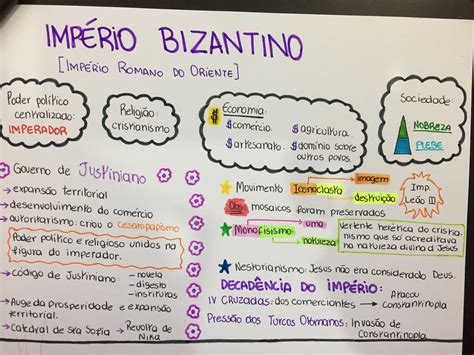 IMPÉRIO BIZANTINO
[IMPÉRIO ROMANO DO ORIENTE]
Poder político
centralizado:
IMPERADOR
Religião:
cristianismo
$ Economia:
$ comércio.
$ agricultura.
$ artesanato.
$ domínio sobre
outros povos.
Sociedade:
NOBREZA
PLEBE
Governo de Justiniano
→ expansão territorial
→ desenvolvimento do comércio
→ autoritarismo: criou o cesaropapismo
Poder político e religioso unidos na
figura do imperador.
→ código de Justiniano:
- novela
- digesto
- institutas
→ Auge da prosperidade e expansão
territorial.
→ Catedral de Sta Sofia → Revolta de
Nika
Movimento Iconoclasta
imagem
destruição
Imp.
Leão III
Obs: mosaicos foram preservados
Monofisismo
uma
natureza
Vertente herética do cristia
nismo que só acreditava
na natureza divina d Jesus
Nestorianismo: Jesus não era considerado Deus.
DECADÊNCIA DO IMPÉRIO:
IV CRUZADAS: dos comerciantes → Atacou
Constantinopla
Pressão dos Turcos Otomanos: Invasão de
Constantinopla